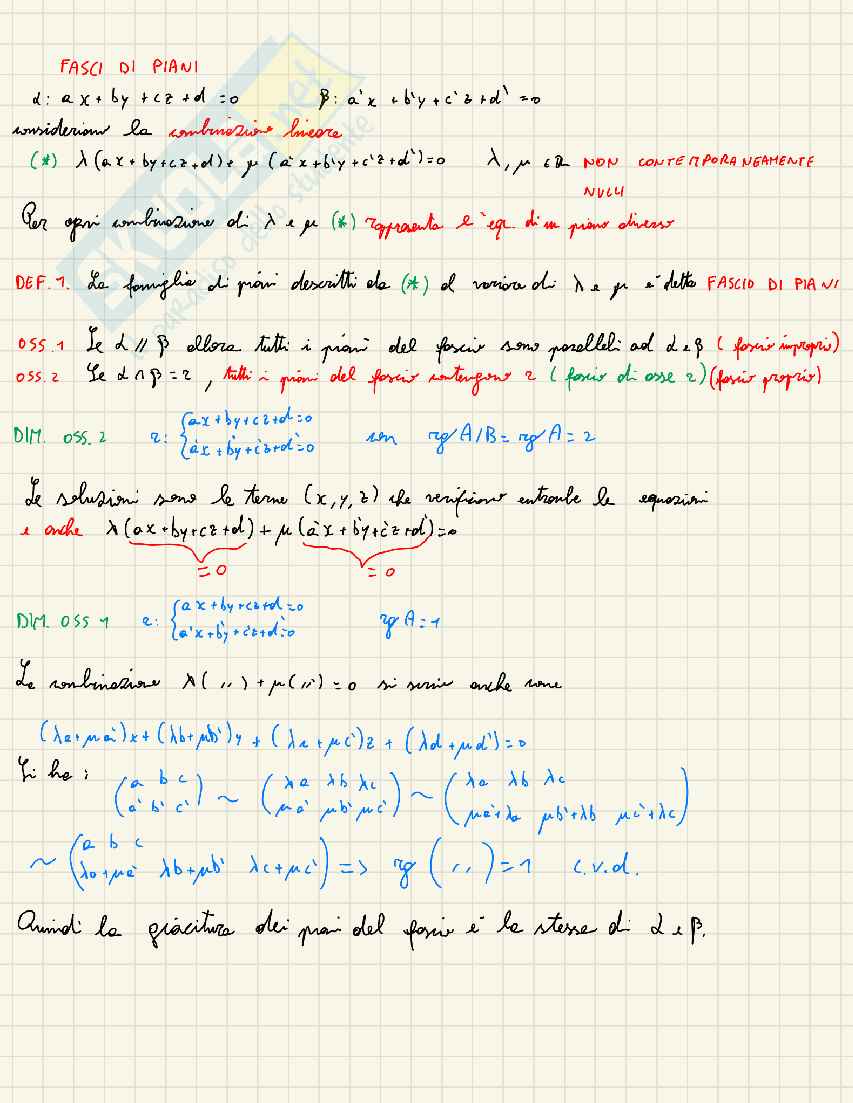 FASCI DI PIANI
α: ax + by + cz + d = 0 β: a'x + b'y + c'z + d' = 0
consideriamo la combinazione lineare
(*) λ(ax + by + cz + d) + μ(a'x + b'y + c'z + d') = 0 λ, μ ∈ ℝ NON CONTEMPORANEAMENTE
NULLI
Per ogni combinazione di λ e μ (*) rappresenta l'eq. di un piano diverso
DEF. 1. La famiglia di piani descritti da (*) al variare di λ e μ è detta FASCIO DI PIANI
OSS. 1 Se α // β allora tutti i piani del fascio sono paralleli ad α e β (fascio improprio)
OSS. 2 Se α ∩ β = r, tutti i piani del fascio contengono r (fascio di asse r) (fascio proprio)
DIM. OSS. 2 r: { ax + by + cz + d = 0
a'x + b'y + c'z + d' = 0 con rg A/B = rg A = 2
Le soluzioni sono le terne (x, y, z) che verificano entrambe le equazioni
e anche λ(ax + by + cz + d) + μ(a'x + b'y + c'z + d') = 0
= 0 = 0
DIM. OSS 1 r: { ax + by + cz + d = 0
a'x + b'y + c'z + d' = 0 rg A = 1
La combinazione λ( ,, ) + μ( ,, ) = 0 si scrive anche come
(λa + μa')x + (λb + μb')y + (λc + μc')z + (λd + μd') = 0
Si ha:
( a b c
a' b' c' ) ~ ( λa λb λc
μa' μb' μc' ) ~ ( λa λb λc
μa' + λa μb' + λb μc' + λc )
~ ( a b c
λa + μa' λb + μb' λc + μc' ) => rg ( ,, ) = 1 c.v.d.
Quindi la giacitura dei piani del fascio è la stessa di α e β.
SKUOLA.net
il paradiso dello studente